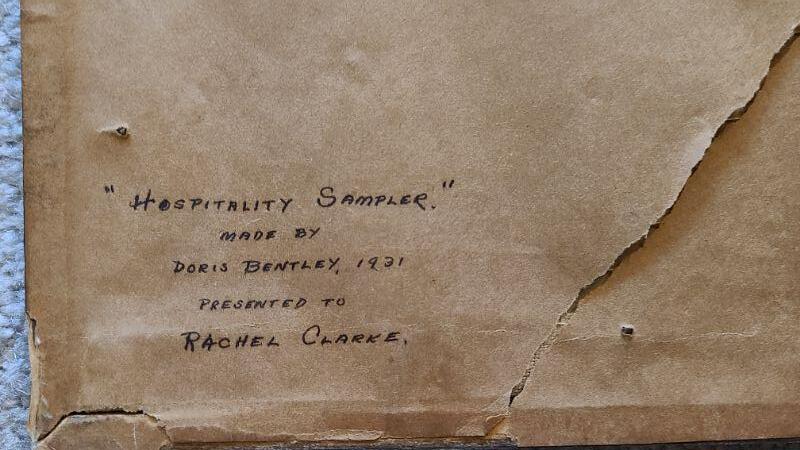 "HOSPITALITY SAMPLER."
MADE BY
DORIS BENTLEY, 1931
PRESENTED TO
RACHEL CLARKE.